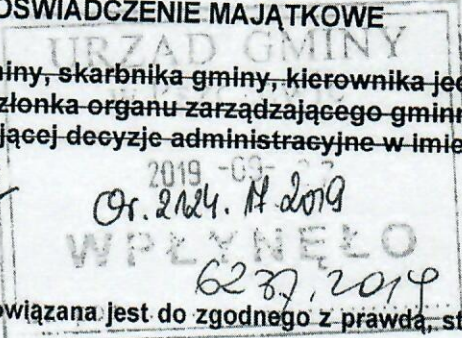 OŚWIADCZENIE MAJĄTKOWE
URZĄD GMINY
iny, skarbnika gminy, kierownika jed
złonka organu zarządzającego gminn
jącej decyzje administracyjne w imie
2019 -09-
Or. 2124. 17.2019
WPŁYNĘŁO
6237.2019
owiązana jest do zgodnego z prawdą, st